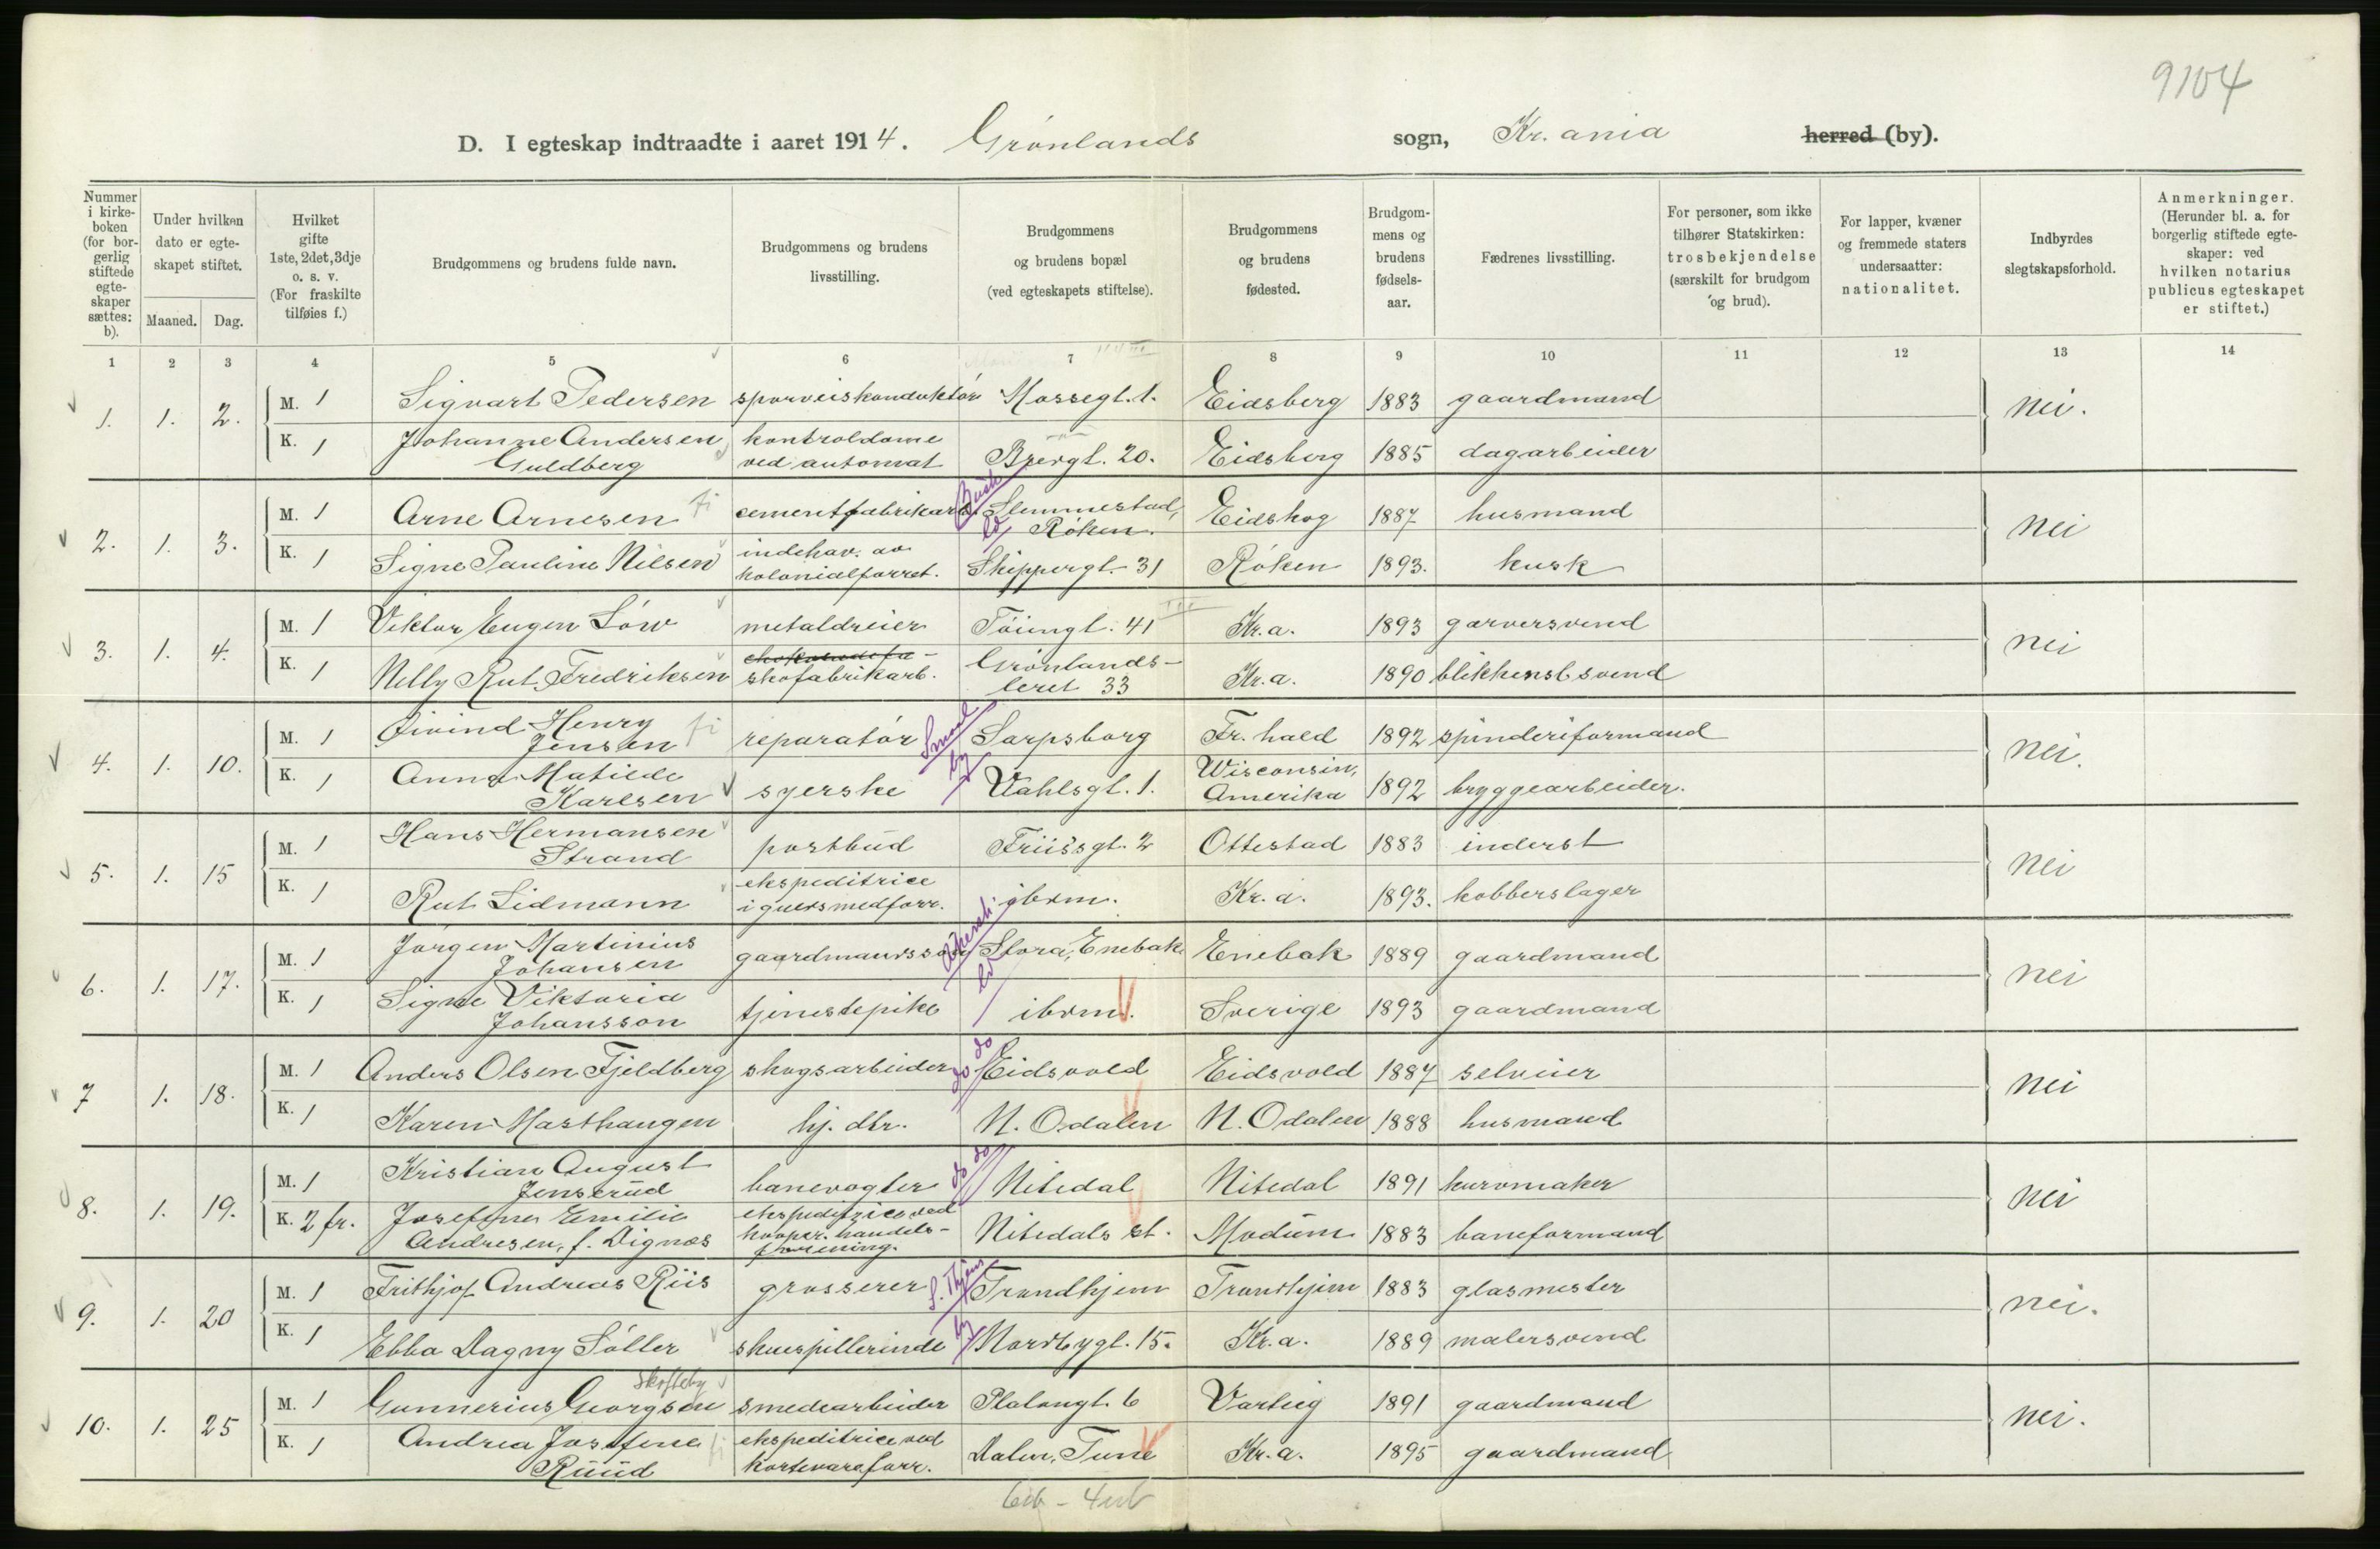 9104
D. I egteskap indtraadte i aaret 1914. Grønlands sogn, Kr.ania herred (by).
Nummer i kirkeboken (for borgerlig stiftede egteskaper sættes: b).
Under hvilken dato er egteskapet stiftet.
Maaned. Dag.
Hvilket gifte 1ste, 2det, 3dje o. s. v. (For fraskilte tilføies f.)
Brudgommens og brudens fulde navn.
Brudgommens og brudens livsstilling.
Brudgommens og brudens bopæl (ved egteskapets stiftelse).
Brudgommens og brudens fødested.
Brudgommens og brudens fødselsaar.
Fædrenes livsstilling.
For personer, som ikke tilhører Statskirken: trosbekjendelse (særskilt for brudgom og brud).
For lapper, kvæner og fremmede staters undersaatter: nationalitet.
Indbyrdes slegtskapsforhold.
Anmerkninger. (Herunder bl. a. for borgerlig stiftede egteskaper: ved hvilken notarius publicus egteskapet er stiftet.)
1 2 3 4 5 6 7 8 9 10 11 12 13 14
1. 1. 2. M. 1 Sigvart Pedersen sporveiskonduktør Mossegt. 1. Eidsberg 1883 gaardmand nei.
K. 1 Johanne Andersen Guldberg kontroldame ved automat Brergt. 20. Eidsberg 1885 dagarbeider
2. 1. 3. M. 1 Arne Arnesen fi cementfabrikarb. Slemmestad, Røken. Eidskog 1887 husmand nei
K. 1 Signe Pauline Nilsen indehav. av kolonialforret. Skippergt. 31 Røken 1893. kusk
3. 1. 4. M. 1 Viktor Eugen Löw metaldreier Tøiengt. 41 Kr.a. 1893 garversvend nei
K. 1 Nelly Rut Fredriksen skofabrikarb. Grønlandsleret 33 Kr.a. 1890 blikkenslsvend
4. 1. 10. M. 1 Øivind Henry Jensen fi reparatør Smaal by Sarpsborg Fr.hald 1892 spinderiformand nei.
K. 1 Anna Matilde Karlsen syerske Vahlsgt. 1. Wisconsin, Amerika 1892 bryggearbeider.
5. 1. 15 M. 1 Hans Hermansen Strand postbud Friisgt. 2 Ottestad 1883 inderst nei
K. 1 Rut Lidmann ekspeditrice i guldsmedforr. ibdm. Kr.a. 1893. kobberslager
6. 1. 17. M. 1 Jørgen Martinius Johansen gaardmandssøn Akersh. ld Flora, Enebak Enebak 1889 gaardmand nei
K. 1 Signe Viktoria Johansson tjenestepike ibdm. Sverige 1893 gaardmand
7 1. 18. M. 1 Anders Olsen Fjeldberg skogsarbeider do do Eidsvold Eidsvold 1887 selveier nei
K. 1 Karen Masthaugen hj. dtr. N. Odalen N. Odalen 1888 husmand
8. 1. 19. M. 1 Kristian August Jenserud banevogter do do Nitedal Nitedal 1891 kurvmaker nei
K. 2 fr. Josefine Emilie Andresen, f. Dignæs ekspeditrice ved kooper. handelsforening. Nitedals st. Modum 1883 baneformand
9. 1. 20 M. 1 Frithjof Andreas Riis grosserer S. Thjem by Trondhjem Trondhjem 1883 glasmester nei.
K. 1 Ebba Dagny Søller skuespillerinde Nordbygt. 15. Kr.a. 1889 malersvend
10. 1. 25 M. 1 Gunnerius Georgsen Skofteby smedearbeider Platougt. 6 Varteig 1891 gaardmand nei.
K. 1 Andrea Josefine Ruud fi ekspeditrice ved kortevareforr. Dalen, Tune Kr.a. 1895 gaardmand